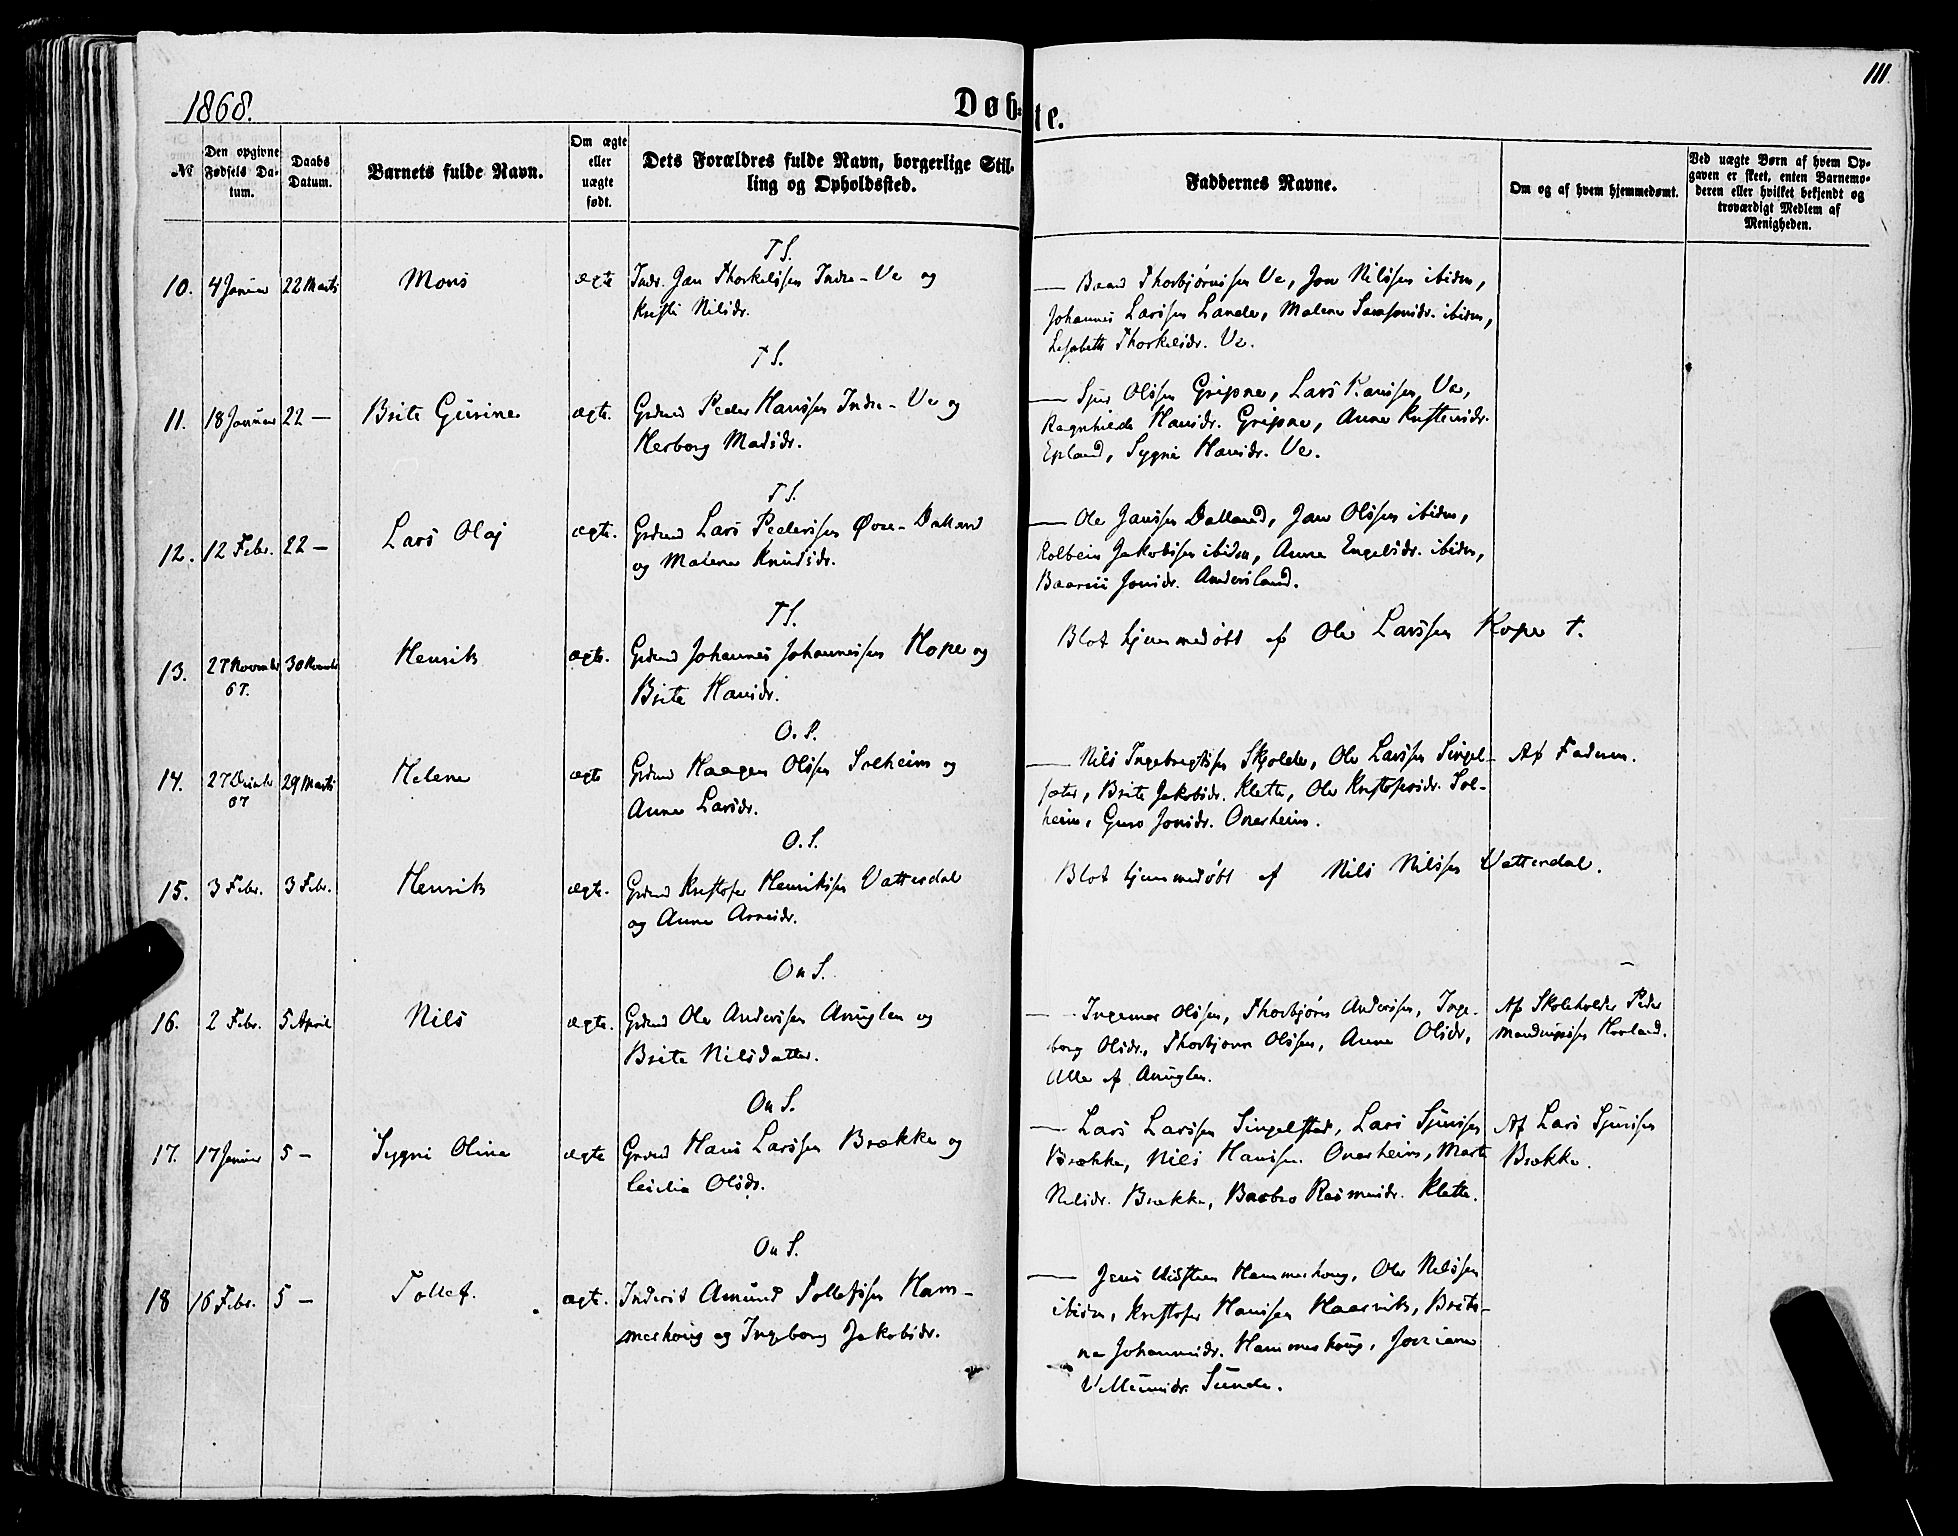 1868.
Døb-
te.
111.
№
Den opgivne Fødsels Da-tum.
Daabs Datum.
Barnets fulde Navn.
Om ægte eller uægte født.
Dets Forældres fulde Navn, borgerlige Stil-ling og Opholdssted.
Faddernes Navne.
Om og af hvem hjemmedømt.
Ved uægte Børn af hvem Op-gaven er skeet, enten Barnemo-deren eller hvilket bekjendt og troværdigt Medlem af Menigheden.
T S.
10. 4 Januar 22 Marts Mons ægte Indr. Jan Thorkelssen Indre-Ve og
Kristi Nilsdr.
— Baard Thorbjørnssen Ve, Jon Nilssen ibidem,
Johannes Larssen Lande, Malene Samsonsdr. ibidm,
Lisabeth Thorkelsdr. Ve.
T S.
11. 18 Januar 22 — Brite Gurine ægte. Grdmd Peder Hanssen Indre-Ve og
Herborg Madsdr.
— Sjur Olssen Gripne, Lars Hanssen Ve,
Ragnhilde Hansdr. Gripne, Anne Kristensdr.
Epland, Sygni Hansdr. Ve.
T S.
12. 12 Febr. 22 — Lars Olaj ægte. Grdmd Lars Pederssen Øvre-Dalland
og Malene Knudsdr.
— Ole Janssen Dalland, Jan Olssen ibidm,
Kolbein Jakobssen ibidm, Anne Engelsdr. ibidm,
Jonsdr. Andersland.
T S.
13. 27 November 67. 30 Novmbr Henrik ægte. Grdmd Johannes Johannessen Hope og
Brite Hansdr.
Blot hjemmedøbt af Ole Larssen Hope †.
O. S.
14. 27 Decmbr 67 29 Marts Helene ægte Grdmd Haagen Olssen Solheim og
Anne Larsdr.
— Nils Ingebrigtssen Skjolde, Ole Larssen Singel-
sæter, Brite Jakobsdr. Klette, Ole Kristofersdr. Sol-
heim, Guro Jonsdr. Onarheim.
Af Faderen.
O. S.
15. 3 Febr. 3 Febr. Henrik ægte. Grdmd Kristofer Henrikssen Vattesdal
og Anne Arnesdr.
Blot hjemmedøbt af Nils Nilssen Vattendal.
On S.
16. 2 Febr. 5 April Nils ægte. Grdmd Ole Anderssen Anuglen og
Brite Nilsdatter.
— Ingemar Olssen, Thorbjørn Anderssen, Inge-
borg Olsdr., Thorbjørn Olssen, Anne Olsdr,
Alle af Anuglen.
Af Skoleholder Peder
Hovland.
On S.
17. 17 Januar 5 — Sygni Oline ægte Grdmd Hans Larssen Brække og
Cecilia Olsdr.
— Lars Larssen Singelstad, Lars Sjurssen
Brække, Nils Hanssen Onarheim, Marte
Nilsdr. Brække, Barbro Rasmusdr. Klette.
Af Lars Sjurssen
Brække.
On S.
18 16 Febr. 5 — Tollef. ægte. Inderst Amund Tollefssen Ham-
merhoug og Ingeborg Jakobsdr.
— Jens Hammerhoug, Ole Nilssen
ibidm, Kristofer Hanssen Haarvik, Brite-
ne Johannesdr. Hammerhoug,
Villumsdr. Sunde.